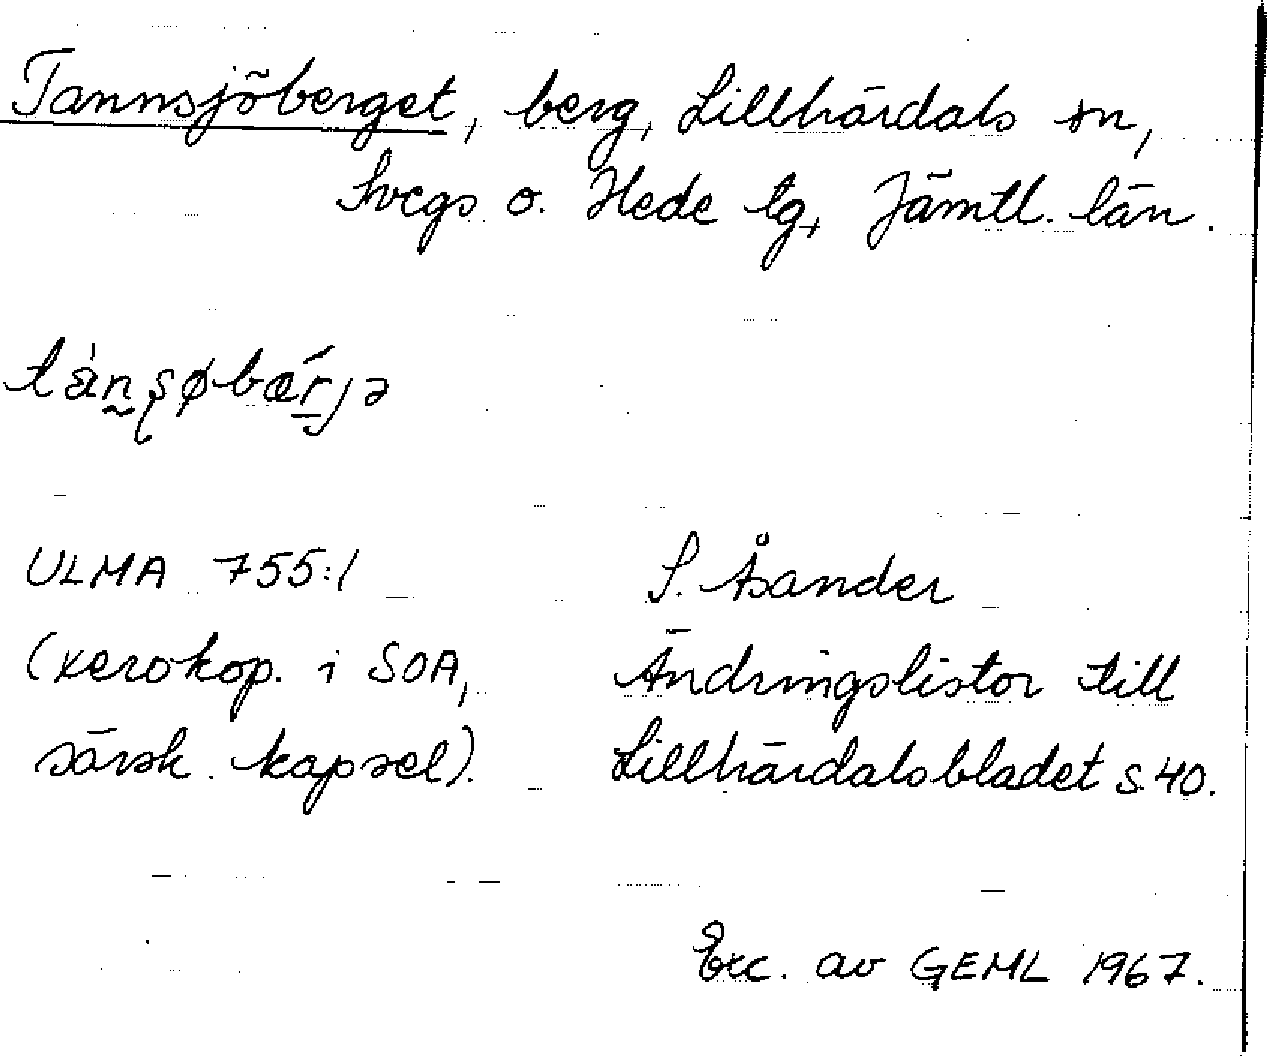 Tannsjöberget, berg, Lillhärdals sn,
Svegs o. Hede tg, Jämtl. län.
ULMA 755:1
S. Åsander
(xerokop. i SOA,
Ändringslistor till
särsk. kapsel).
Lillhärdalsbladet s. 40.
Exc. av GEML 1967.